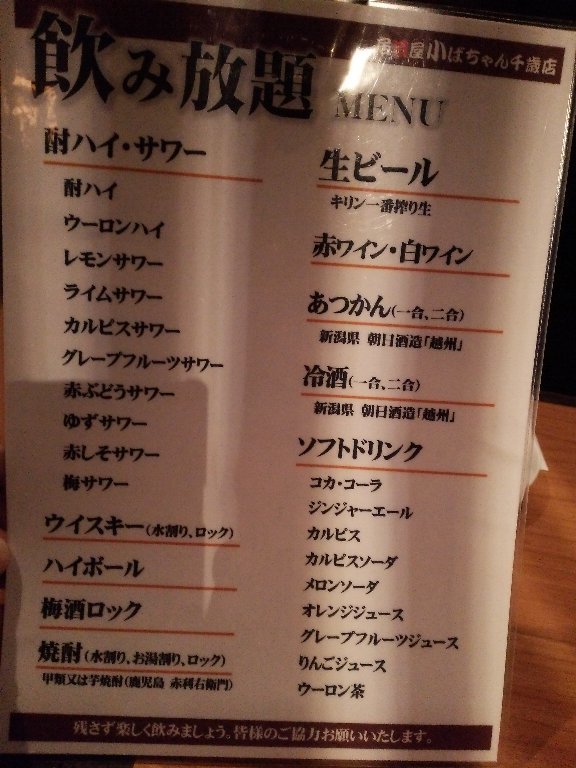 居酒屋小ばちゃん千歳店
飲み放題 MENU
酎ハイ・サワー
酎ハイ
ウーロンハイ
レモンサワー
ライムサワー
カルピスサワー
グレープフルーツサワー
赤ぶどうサワー
ゆずサワー
赤しそサワー
梅サワー
ウイスキー(水割り、ロック)
ハイボール
梅酒ロック
焼酎(水割り、お湯割り、ロック)
甲類又は芋焼酎(鹿児島 赤利右衛門)
生ビール
キリン一番搾り生
赤ワイン・白ワイン
あつかん(一合、二合)
新潟県 朝日酒造「越州」
冷酒(一合、二合)
新潟県 朝日酒造「越州」
ソフトドリンク
コカ・コーラ
ジンジャーエール
カルピス
カルピスソーダ
メロンソーダ
オレンジジュース
グレープフルーツジュース
りんごジュース
ウーロン茶
残さず楽しく飲みましょう。皆様のご協力お願いいたします。